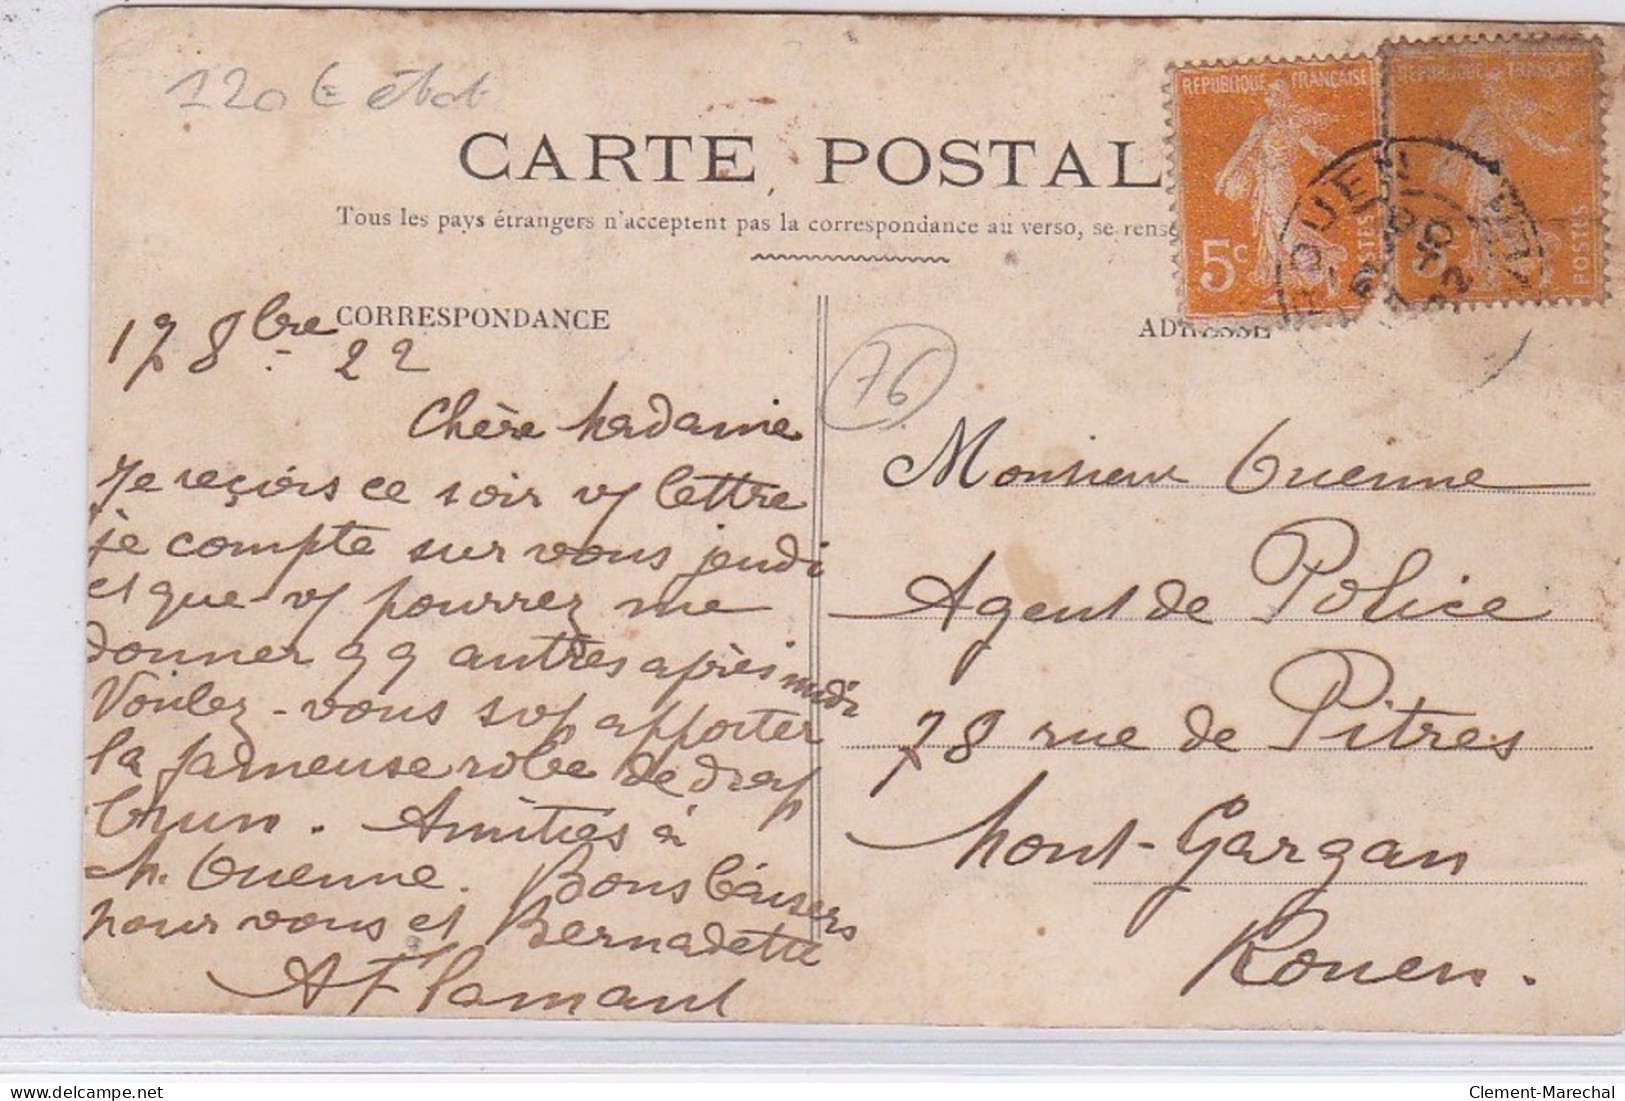 120 € état
CARTE POSTAL
Tous les pays étrangers n'acceptent pas la correspondance au verso, se rense
RÉPUBLIQUE FRANÇAISE
5c
POSTES
RÉPUBLIQUE FRANÇAISE
5c
POSTES
ROUEN
CORRESPONDANCE
ADRESSE
76
17 8bre 22
Chère Madame
Je reçois ce soir v/ lettre
je compte sur vous jeudi
et que v/ pourrez me
donner qq autres après midi
Voulez-vous svp apporter
la fameuse robe de drap
brun. Amitiés à
M. Guenne. Bons baisers
pour vous et Bernadette
A Flamant
Monsieur Guenne
Agent de Police
78 rue de Pitres
Mont-Gargan
Rouen.
delcampe.net
Clement-Marechal